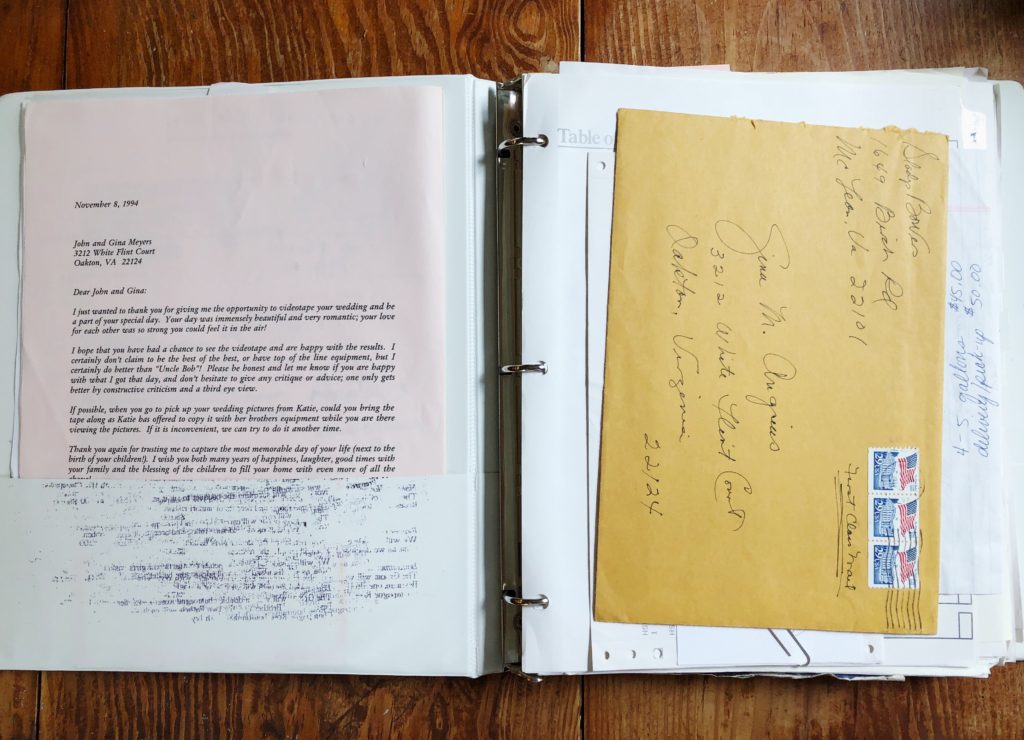 November 8, 1994
John and Gina Meyers
3212 White Flint Court
Oakton, VA 22124
Dear John and Gina:
I just wanted to thank you for giving me the opportunity to videotape your wedding and be
a part of your special day. Your day was immensely beautiful and very romantic; your love
for each other was so strong you could feel it in the air!
I hope that you have had a chance to see the videotape and are happy with the results. I
certainly don't claim to be the best of the best, or have top of the line equipment, but I
certainly do better than "Uncle Bob"! Please be honest and let me know if you are happy
with what I got that day, and don't hesitate to give any critique or advice; one only gets
better by constructive criticism and a third eye view.
If possible, when you go to pick up your wedding pictures from Katie, could you bring the
tape along as Katie has offered to copy it with her brothers equipment while you are there
viewing the pictures. If it is inconvenient, we can try to do it another time.
Thank you again for trusting me to capture the most memorable day of your life (next to the
birth of your children!). I wish you both many years of happiness, laughter, good times with
your family and the blessing of the children to fill your home with even more of all the
Table o
Bowers
1649 Birch Rd
McLean, Va 22101
Gina M.
3212 White Flint Court
Oakton, Virginia
22124
First Class Mail
29
29
29
4-5 gallons $45.00
delivery/pick-up $50.00